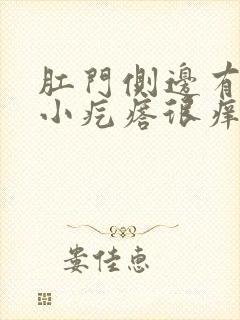 肛門側邊有
小疙瘩很癢
娄佳惠